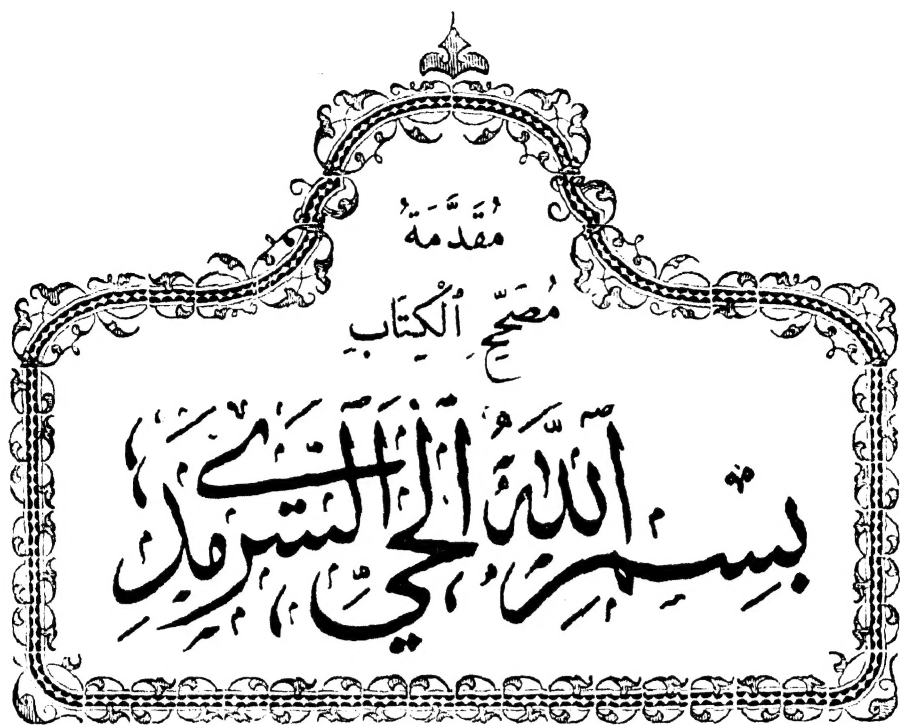 مُقَدَّمَةُ
مُصَحِّحِ ٱلْكِتَابِ
بِسْمِ ٱللّٰهِ ٱلْحَيِّ ٱلسَّرْمَدِي